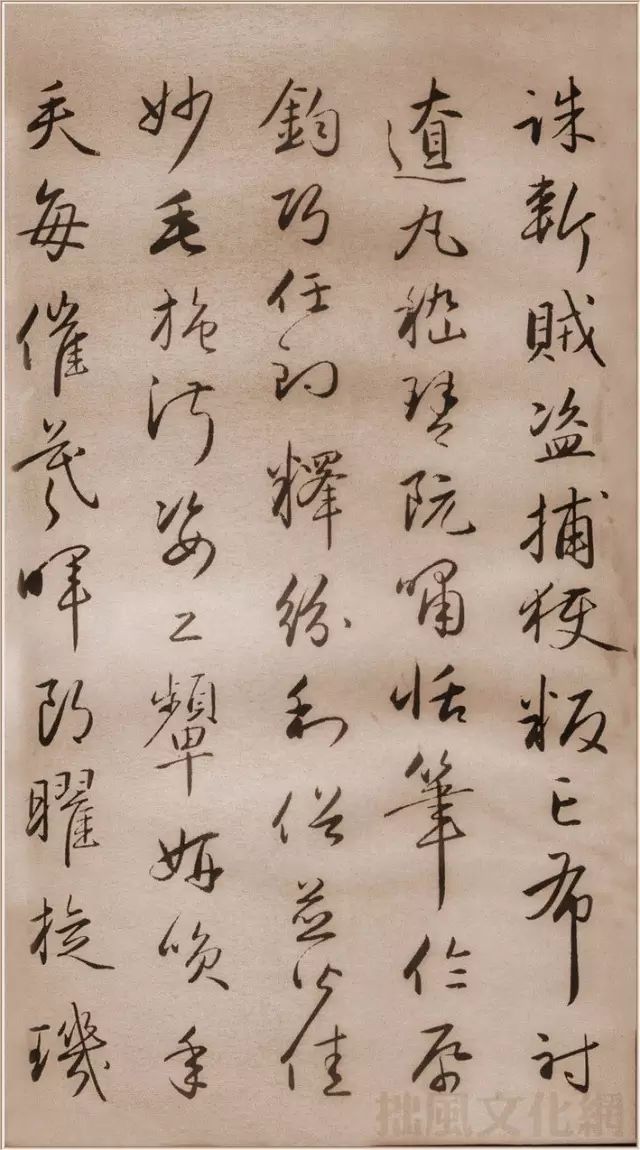 誅斬賊盜捕獲叛亡布射
遼丸嵇琴阮嘯恬筆倫紙
鈞巧任釣釋紛利俗並皆佳
妙毛施淑姿工顰妍笑年
矢每催羲暉朗曜旋璣
拙風文化網